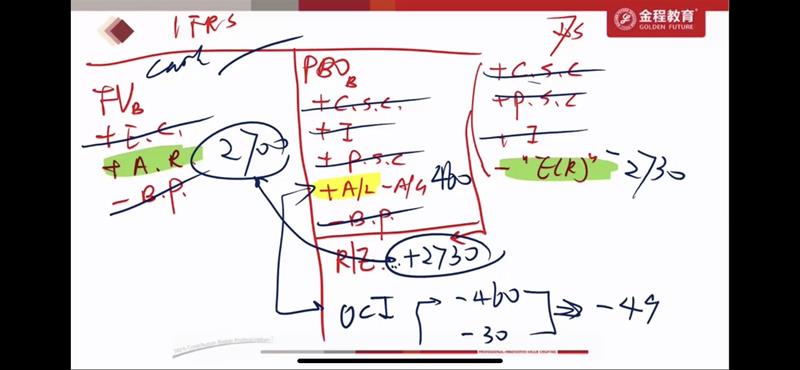 IFRS
金程教育
GOLDEN FUTURE
FV_B
+ E.C.
+ A.R
- B.P.
2700
PBO_B
+ C.S.C.
+ I
+ P.S.C
+ A/L - A/G 460
- B.P.
R/E +2730
OCI
-460
-30
-49
+ C.S.C
+ P.S.C
+ I
- "E(R)" - 2730
PROFESSIONAL·INNOVATIVE·VALUE CREATING